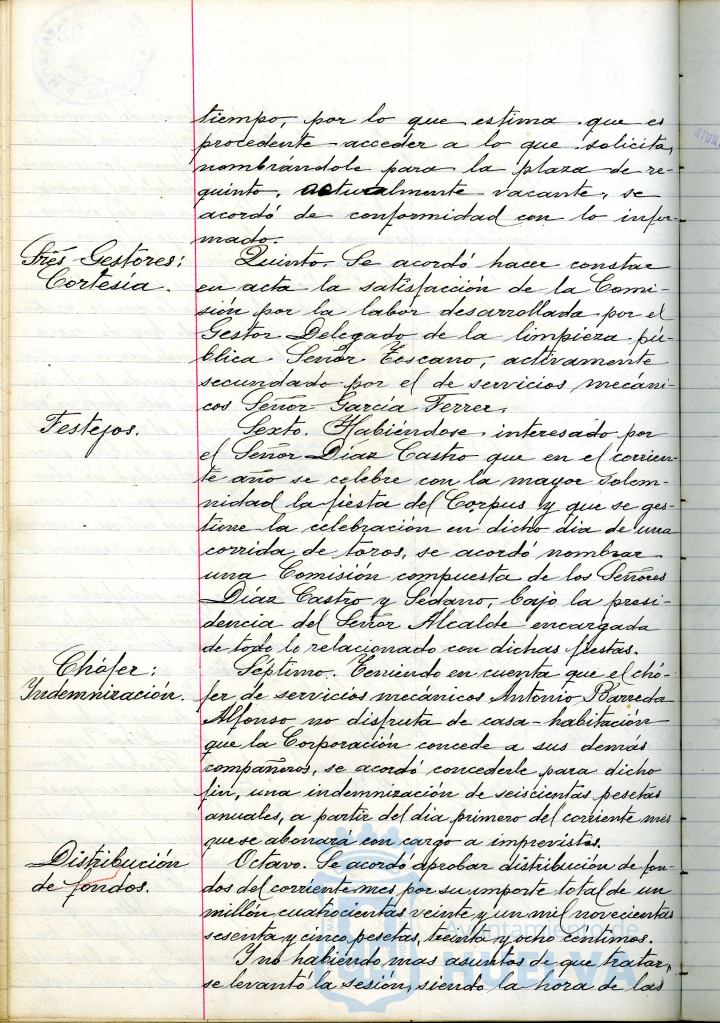 tiempo, por lo que estima que es
procedente acceder a lo que solicita,
nombrándole para la plaza de re-
quinto, actualmente vacante, se
acordó de conformidad con lo infor-
mado.
Tres Gestores:
Cortesía.
Quinto. Se acordó hacer constar
en acta la satisfacción de la Comi-
sión por la labor desarrollada por el
Gestor Delegado de la limpieza pú-
blica Señor Toscano, activamente
secundado por el de servicios mecáni-
cos Señor García Ferrer.
Festejos.
Sexto. Habiéndose interesado por
el Señor Díaz Castro que en el corrien-
te año se celebre con la mayor solem-
nidad la fiesta del Corpus y que se ges-
tione la celebración en dicho dia de una
corrida de toros, se acordó nombrar
una Comisión compuesta de los Señores
Díaz Castro y Sedano, bajo la presi-
dencia del Señor Alcalde encargada
de todo lo relacionado con dichas fiestas.
Chófer:
Indemnización.
Séptimo. Teniendo en cuenta que el chó-
fer de servicios mecánicos Antonio Barreda
Alfonso no disfruta de casa-habitación
que la Corporación concede a sus demás
compañeros, se acordó concederle para dicho
fin, una indemnización de seiscientas pesetas
anuales, a partir del dia primero del corriente mes
que se abonará con cargo a imprevistos.
Distribución
de fondos.
Octavo. Se acordó aprobar distribución de fon-
dos del corriente mes por su importe total de un
millón cuatrocientas veinte y un mil novecientas
sesenta y cinco pesetas, treinta y ocho céntimos.
Y no habiendo mas asuntos de que tratar,
se levantó la sesión, siendo la hora de las
Ayuntamiento de
HUELVA